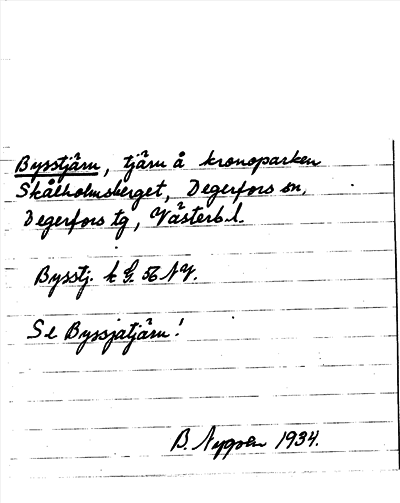 Bysstjärn, tjärn å kronoparken
Skålholmsberget, Degerfors sn,
Degerfors tg, Västerb.l.
Bysstj. k G. 56 NV.
Se Byssjatjärn!
B. Nygren 1934.